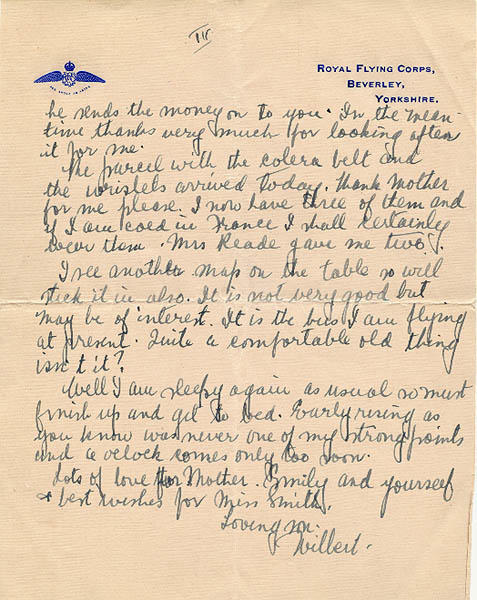 III
ROYAL FLYING CORPS,
BEVERLEY,
YORKSHIRE.
he sends the money on to you. In the mean-
time thanks very much for looking after
it for me.
The parcel with the colera belt and
the wristlets arrived today. Thank Mother
for me please. I now have three of them and
if I am coed in France I shall certainly
wear them. Mrs Reade gave me two.
I see another map on the table so will
stick it in also. It is not very good but
may be of interest. It is the bus I am flying
at present. Quite a comfortable old thing
isn't it?
Well I am sleepy again as usual so must
finish up and get to bed. Early rising as
you know was never one of my strong points
and oclock comes only too soon.
Lots of love for Mother. Emily and yourself
& best wishes for Miss Smith.
Loving son.
Wilbert.